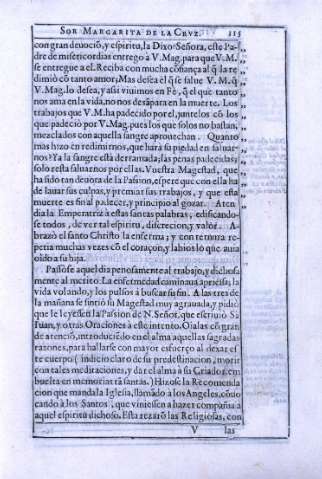 SOR MARGARITA DE LA CRUZ. 115
con gran deuociõ, y espiritu, la Dixo Señora, este Pa-
dre de misericordias entrego à V. Mag. para que V.M.
se entregue a el. Reciba con mucha cõfiança al q̃ la re
dimiò cõ tanto amor; Mas desea èl q̃ se salue V. M. q̃
V. Mag. lo desea, y assi viuimos en Fè, q̃ el que tanto
nos ama en la vida, no nos desãpara en la muerte. Los
trabajos que V. M. ha padecido por el, juntelos cõ los
que padeciò por V. Mag. pues los que solos no bastan,
mezclados con aquella sangre aprouechan. Quanto
mas hizo en redimirnos, que harà su piedad en saluar-
nos? Ya la sangre està derramada; las penas padecidas;
solo resta saluarnos por ellas. Vuestra Magestad, que
ha sido tan deuota de la Passion, espere que con ella ha
de lauar sus culpas, y premiar sus trabajos, y que esta
muerte es fin al padecer, y principio al gozar. Aten-
dia la Emperatriz à estas santas palabras, edificando-
se todos, de ver tal espiritu, discrecion, y valor. A-
braçò el santo Christo la enferma; y con ternura re-
petia muchas vezes cõ el coraçon, y labios lo que auia
oìdo a su hija.
Passòse aquel dia penosamente al trabajo, y dichosa
mente al merito. La enfermedad caminaua aprissa; la
vida volando, y los pulsos à buscar su fin. A las tres de
la mañana se sintiò su Magestad muy agrauada, y pidiò
que le leyessen la Passion de N. Señor, que escriuiò S.
Iuan, y otras Oraciones à este intento. Oialas cõ gran
de atenciõ, introduciẽdo en el alma aquellas sagradas
razones, para hallarse con mayor esfuerço al dexar es-
te cuerpo (indicio claro de su predestinacion, morir
con tales meditaciones, y dar el alma à su Criador, em
buelta en memorias tã santas.) Hizose la Recomenda
cion que manda la Iglesia, llamãdo à los Angeles, cõuo
cando à los Santos, que viniessen a hazer compañia à
aquel espiritu dichoso. Esta rezarõ las Religiosas, con
V las